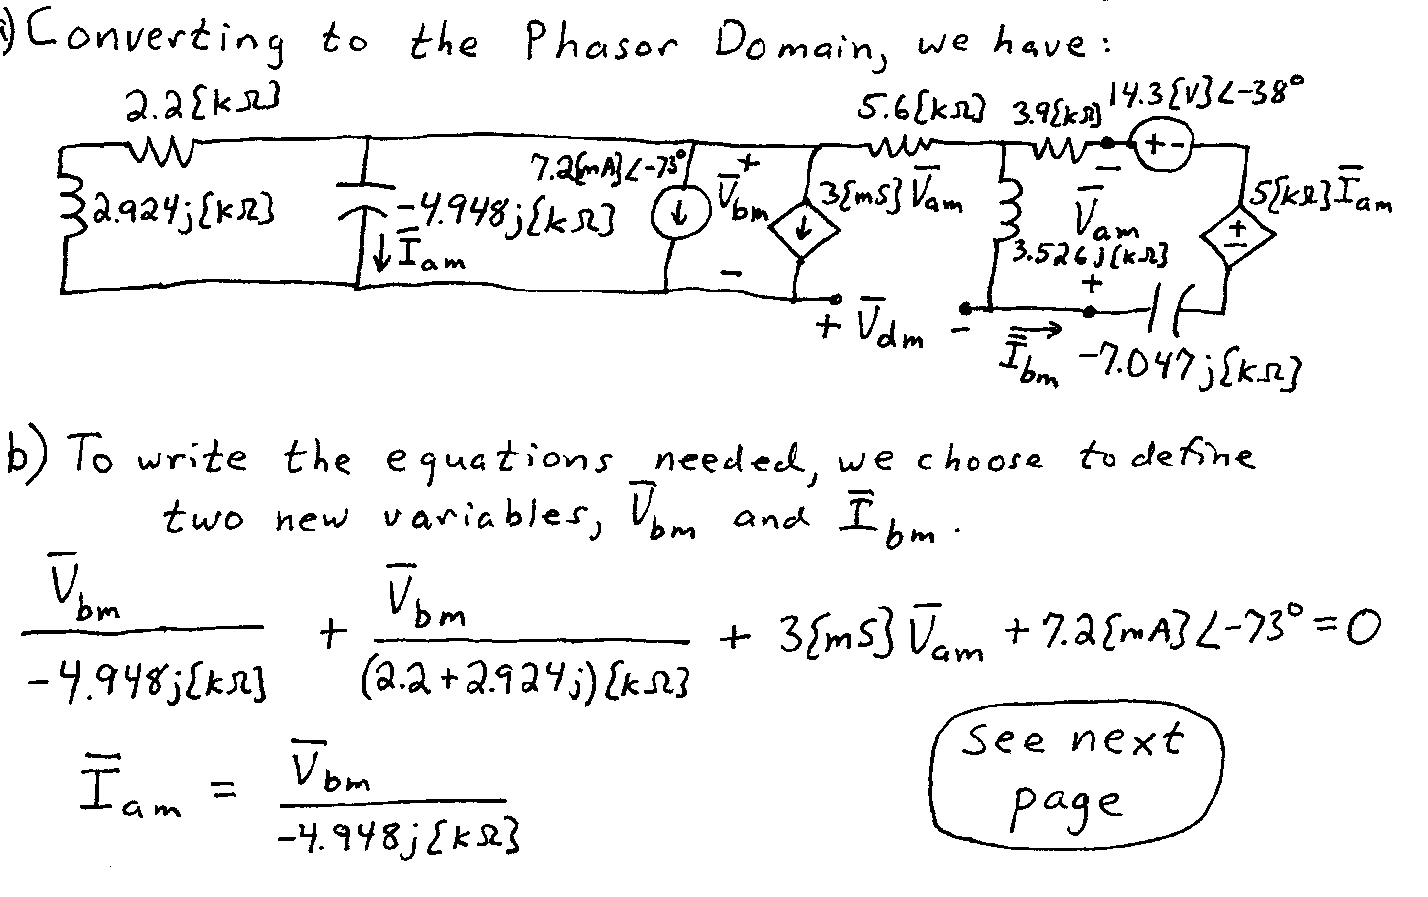 a) Converting to the Phasor Domain, we have:
2.2[kΩ]
5.6[kΩ] 3.9[kΩ] 14.3[V]∠-38°
2.924j[kΩ]
-4.948j[kΩ]
I̅am
7.2[mA]∠-73°
+
V̅bm
-
3[mS] V̅am
3.526j[kΩ]
+ -
-
V̅am
+
5[kΩ] I̅am
+
-
+ V̅dm -
I̅bm
-7.047j[kΩ]
b) To write the equations needed, we choose to define
two new variables, V̅bm and I̅bm.
V̅bm / -4.948j[kΩ] + V̅bm / (2.2+2.924j)[kΩ] + 3[mS] V̅am + 7.2[mA]∠-73° = 0
I̅am = V̅bm / -4.948j[kΩ]
see next
page